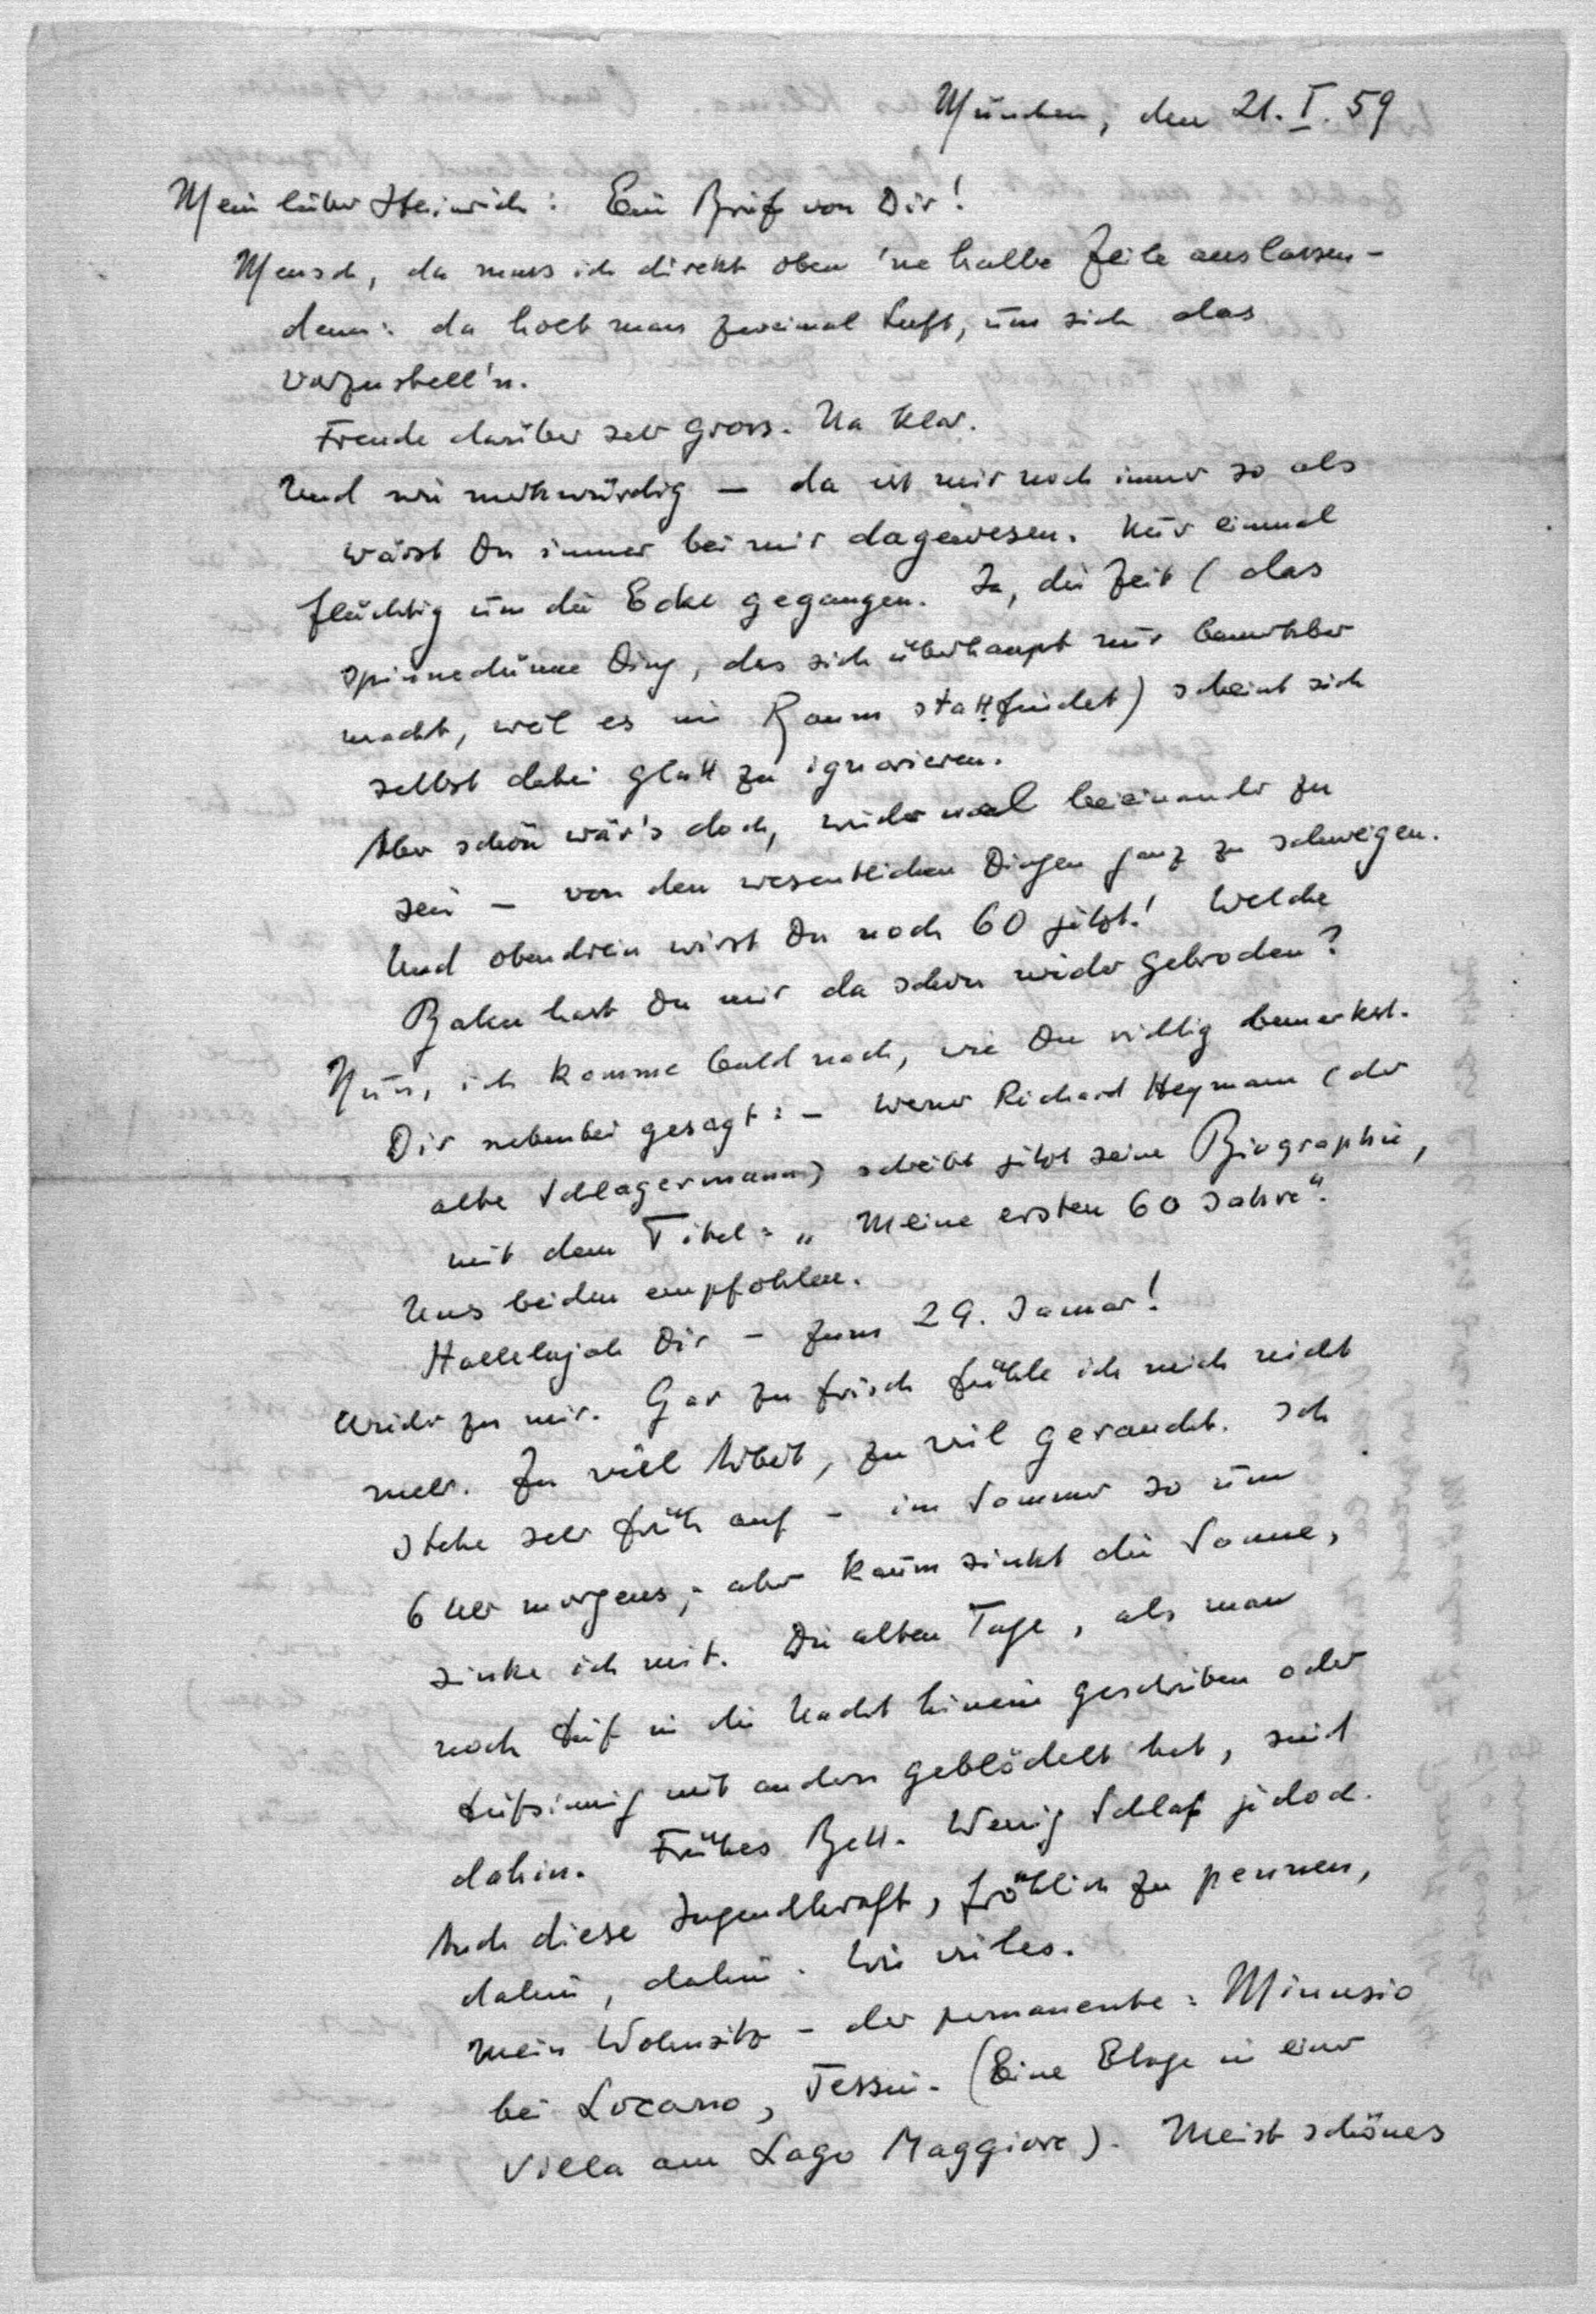 München, den 21. I. 59
Mein lieber Heinrich: Ein Brief von Dir!
Mensch, da muss ich direkt oben 'ne halbe Zeile auslassen –
denn: da holt man zweimal Luft, um sich das
vorzustell'n.
Freude darüber sehr gross. Na klar.
Und wie merkwürdig – da ist mir noch immer so als
wärst Du immer bei mir dagewesen. Nur einmal
flüchtig um die Ecke gegangen. Ja, die Zeit (das
spinnedünne Ding, das sich überhaupt nur bemerkbar
macht, weil es im Raum stattfindet) scheint sich
selbst dabei glatt zu ignorieren.
Aber schön wär's doch, wieder mal beieinander zu
sein – von den wesentlichen Dingen ganz zu schweigen.
Und obendrein wirst Du noch 60 jetzt! Welche
Bahn hast Du mir da schon wieder gebrochen?
Nun, ich komme bald nach, wie Du richtig bemerkst.
Dir nebenbei gesagt: – Werner Richard Heymann (der
alte Schlagermann) schreibt jetzt seine Biographie,
mit dem Titel: „Meine ersten 60 Jahre“.
Uns beiden empfohlen.
Hallelujah Dir – zum 29. Januar!
Wieder zu mir. Gar zu frisch fühle ich mich nicht
mehr. Zu viel Arbeit, zu viel geraucht. Ich
stehe sehr früh auf – im Sommer so um
6 Uhr morgens; aber kaum sinkt die Sonne,
sinke ich mit. Die alten Tage, als man
noch tief in die Nacht hinein geschrieben oder
tiefsinnig mit andern geblödelt hat, sind
dahin. Frühes Bett. Wenig Schlaf jedoch.
Auch diese Jugendkraft, fröhlich zu pennen,
dahin, dahin. Wie vieles.
Mein Wohnsitz – der permanente: Minusio
bei Locarno, Tessin. (Eine Etage in einer
Villa am Lago Maggiore). Meist schönes